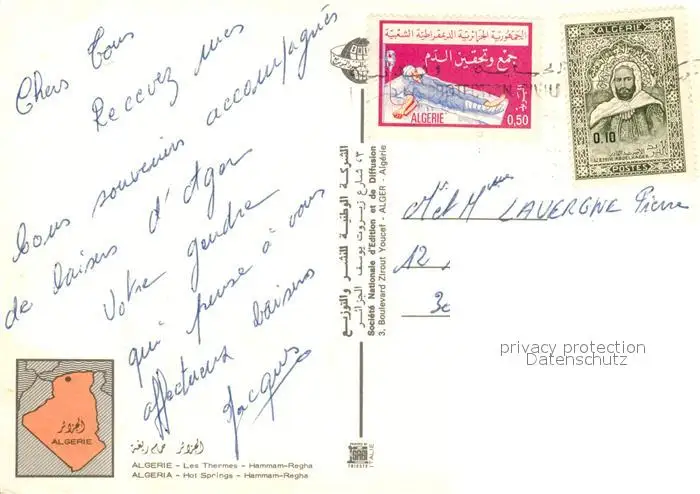 Chers Tous
Recevez mes
bons souvenirs accompagnés
de baisers d'Agar
Votre gendre
qui pense à vous
affectueux baisers
Jacques
الجزائر
ALGERIE
الجزائر حمام ريغة
ALGERIE - Les Thermes - Hammam-Regha
ALGERIA - Hot Springs - Hammam-Regha
الشركة الوطنية للنشر والتوزيع
٣، شارع زيروت يوسف الجزائر
Société Nationale d'Edition et de Diffusion
3, Boulevard Zirout Youcef - ALGER - Algérie
PRINTED BY
TRIESTE
ITALIE
الجمهورية الجزائرية الديمقراطية الشعبية
جمع وتحقين الدم
ALGERIE
0,50
ALGERIE
0.10
L'EMIR ABDELKADER
POSTES
PROTECTION CIVILE
M. et Mme LAVERGNE Pierre
12
privacy protection
Datenschutz